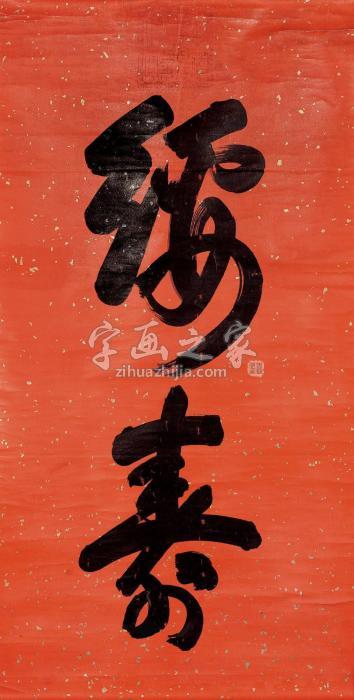 绥寿
字画之家
zihuazhijia.com